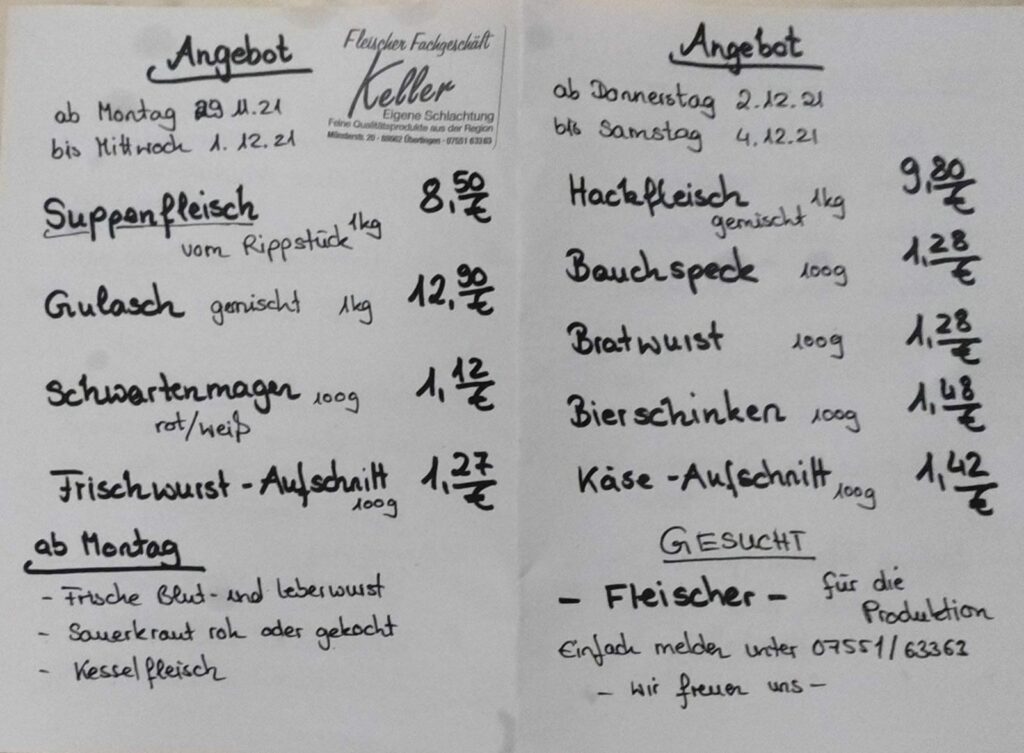 Angebot
ab Montag 29 11.21
bis Mittwoch 1. 12.21
Fleischer Fachgeschäft
Keller
Eigene Schlachtung
Feine Qualitätsprodukte aus der Region
Münsterstr. 20 - 88662 Überlingen - 07551 63363
Suppenfleisch 8,50 €
vom Rippstück 1kg
Gulasch gemischt 1kg 12,90 €
Schwartenmagen 100g 1,12 €
rot/weiß
Frischwurst-Aufschnitt 1,27 €
100g
ab Montag
- Frische Blut- und Leberwurst
- Sauerkraut roh oder gekocht
- Kesselfleisch
Angebot
ab Donnerstag 2.12.21
bis Samstag 4.12.21
Hackfleisch 1kg 9,80 €
gemischt
Bauchspeck 100g 1,28 €
Bratwurst 100g 1,28 €
Bierschinken 100g 1,48 €
Käse-Aufschnitt 100g 1,42 €
GESUCHT
- Fleischer - für die
Produktion
Einfach melden unter 07551/63363
- wir freuen uns -